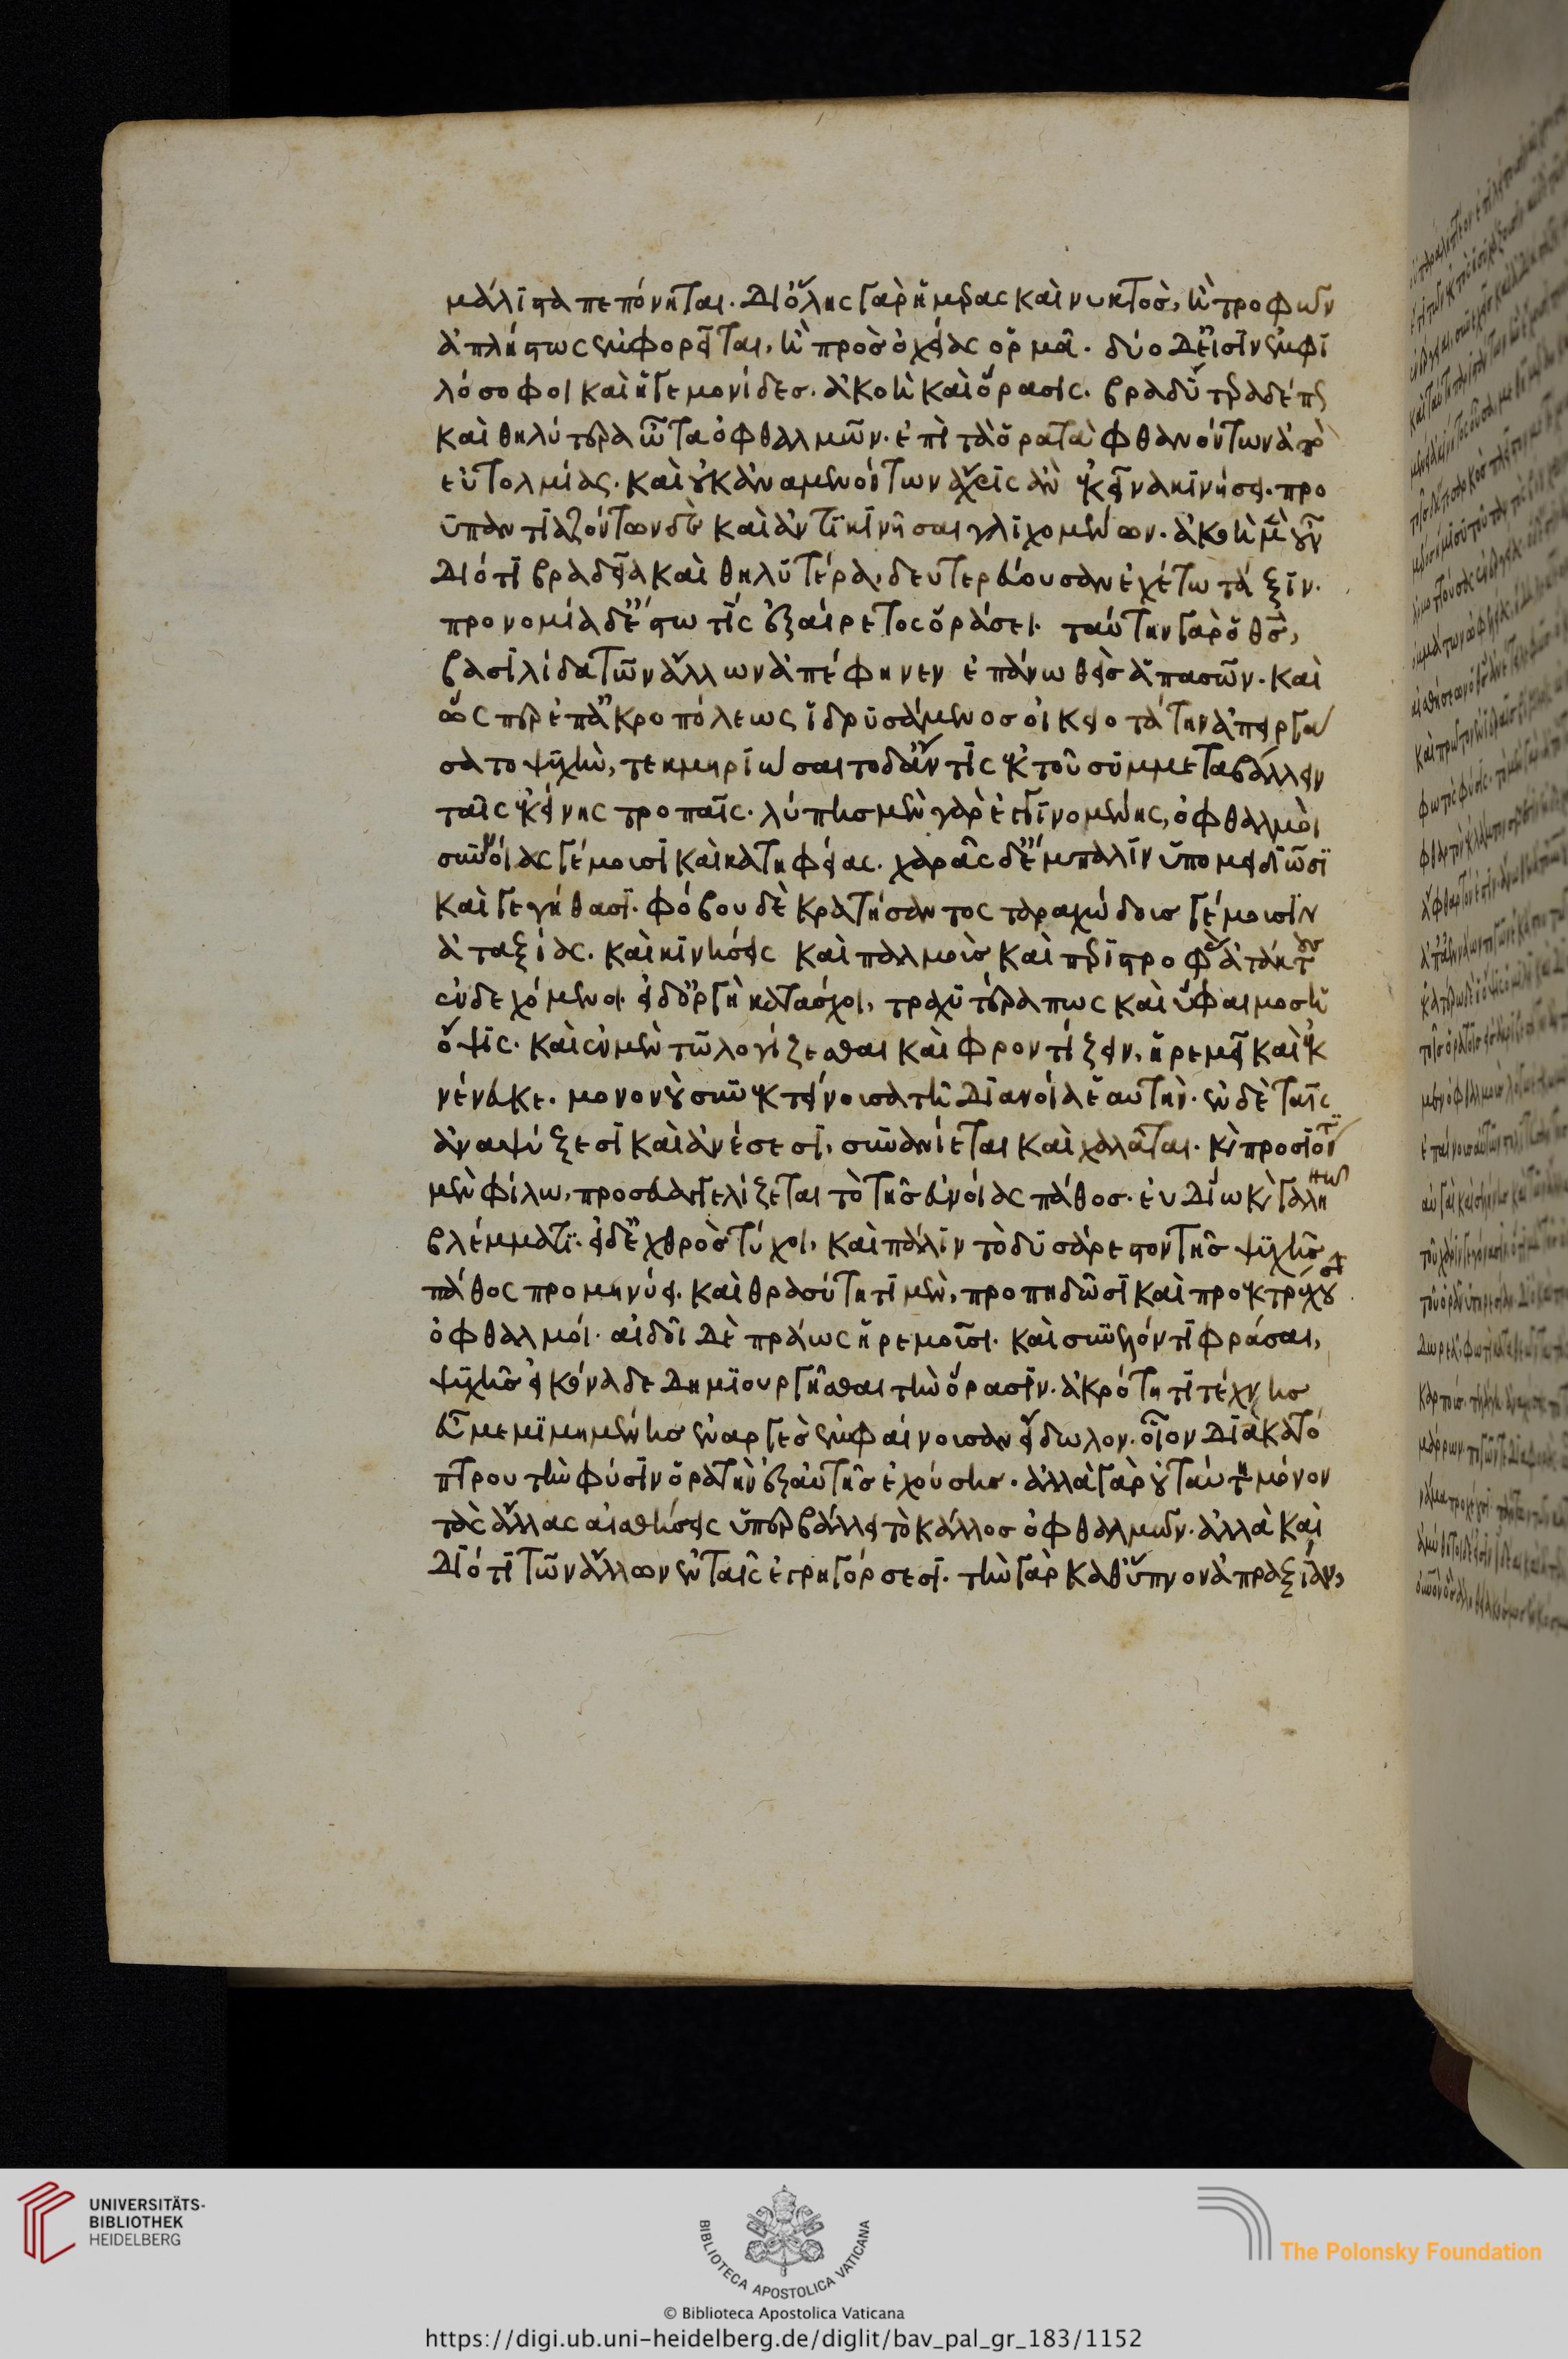 μάλιστα πεπόνηται. Δι ὅλης γὰρ ἡμέρας καὶ νυκτὸς, ἢ τροφῶν
ἀπλήστως ἐμφορεῖται, ἢ πρὸς ὀχείας ὁρμᾶ. δύο δ' εἰσὶν ἐμφι
λόσοφοι καὶ ἡγεμονίδες. ἀκοὴ καὶ ὅρασις. βραδύτερα δέ πως
καὶ θηλύτερα ὦτα ὀφθαλμῶν. ἐπὶ τὰ ὁρατὰ φθανόντων ἀπὸ
εὐτολμίας. καὶ οὐκ ἀναμενόντων ἄχρις ἂν ἐκεῖνα κινήσῃ. προ
ϋπαντιαζόντων δὲ καὶ ἀντικινῆσαι γλιχομένων. ἀκοὴ μὲν οὖν
Διότι βραδεῖα καὶ θηλυτέρα, δευτερεύουσαν ἐχέτω τάξιν.
προνομία δ' ἔστω τίς ἐξαίρετος ὁράσει. ταύτην γὰρ ὁ θς,
βασιλίδα τῶν ἄλλων ἀπέφηνεν ἐπάνω θεὶς ἁπασῶν. καὶ
ὥσπερ ἐπ' ἀκροπόλεως ἱδρυσάμενος οἰκειοτάτην ἀπειργά
σατο ψυχῆ, τεκμηριώσαιτο δ' ἄν τις ἐκ τοῦ συμμεταβάλλειν
ταῖς ἐκείνης τροπαῖς. λύπης μὲν γὰρ ἐγγινομένης, ὀφθαλμοὶ
συννοίας γέμουσι καὶ κατηφείας. χαρᾶς δ' ἔμπαλιν ὑπομειδιῶσι
καὶ γεγήθασι. φόβου δὲ κρατήσαντος ταραχώδους γέμουσιν
ἀταξίας. καὶ κινήσεις καὶ παλμοὺς καὶ περιστροφὰς ἀτάκτους
ἐνδεχόμενοι. εἰ δ' ὀργὴ κατάσχοι, τραχυτέρα πως καὶ ὕφαιμος ἡ
ὄψις. καὶ ἐν μὲν τῶ λογίζεσθαι καὶ φροντίζειν, ἠρεμεῖ καὶ ἐκ
νένευκε. μονονοὺ συνεκτείνουσα τῇ διανοίᾳ ἑαυτήν. ἐν δὲ ταῖς
ἀναψύξεσι καὶ ἀνέσεσι, συνανίεται καὶ χαλᾶται. κ προσιόντι
μὲν φίλω, προσευαγγελίζεται τὸ τῆς εὐνοίας πάθος. εὐδίω κ γαληνῶ
βλέμματι. εἰ δ' ἐχθρὸς τύχοι, καὶ πάλιν τὸ δυσάρεστον τῆς ψυχῆς
πάθος προμηνύει. καὶ θρασύτητι μὲν, προπηδῶσι καὶ προεκτρέχουσι
ὀφθαλμοί. αἰδοῖ δὲ πράως ἠρεμοῦσι. καὶ συνελόντι φράσαι,
ψυχῆς εἰκόνα δεδημιουργῆσθαι τὴν ὅρασιν. ἀκρότητι τέχνης
εὖ μεμιμημένης ἐναργὲς ἐμφαίνουσαν εἴδωλον. οἷον διὰ κατό
πτρου τὴν φύσιν ὁρατὴν ἐξ αὑτῆς ἐχούσης. ἀλλὰ γὰρ οὐ ταύτη μόνον
τὰς ἄλλας αἰσθήσεις ὑπερβάλλει τὸ κάλλος ὀφθαλμῶν. ἀλλὰ καὶ
Διότι τῶν ἄλλων ἐν ταῖς ἐγρηγόρσεσι. τὴν γὰρ καθ' ὕπνον ἀπραξίαν,
UNIVERSITÄTS-
BIBLIOTHEK
HEIDELBERG
BIBLIOTECA APOSTOLICA VATICANA
The Polonsky Foundation
© Biblioteca Apostolica Vaticana
https://digi.ub.uni-heidelberg.de/diglit/bav_pal_gr_183/1152